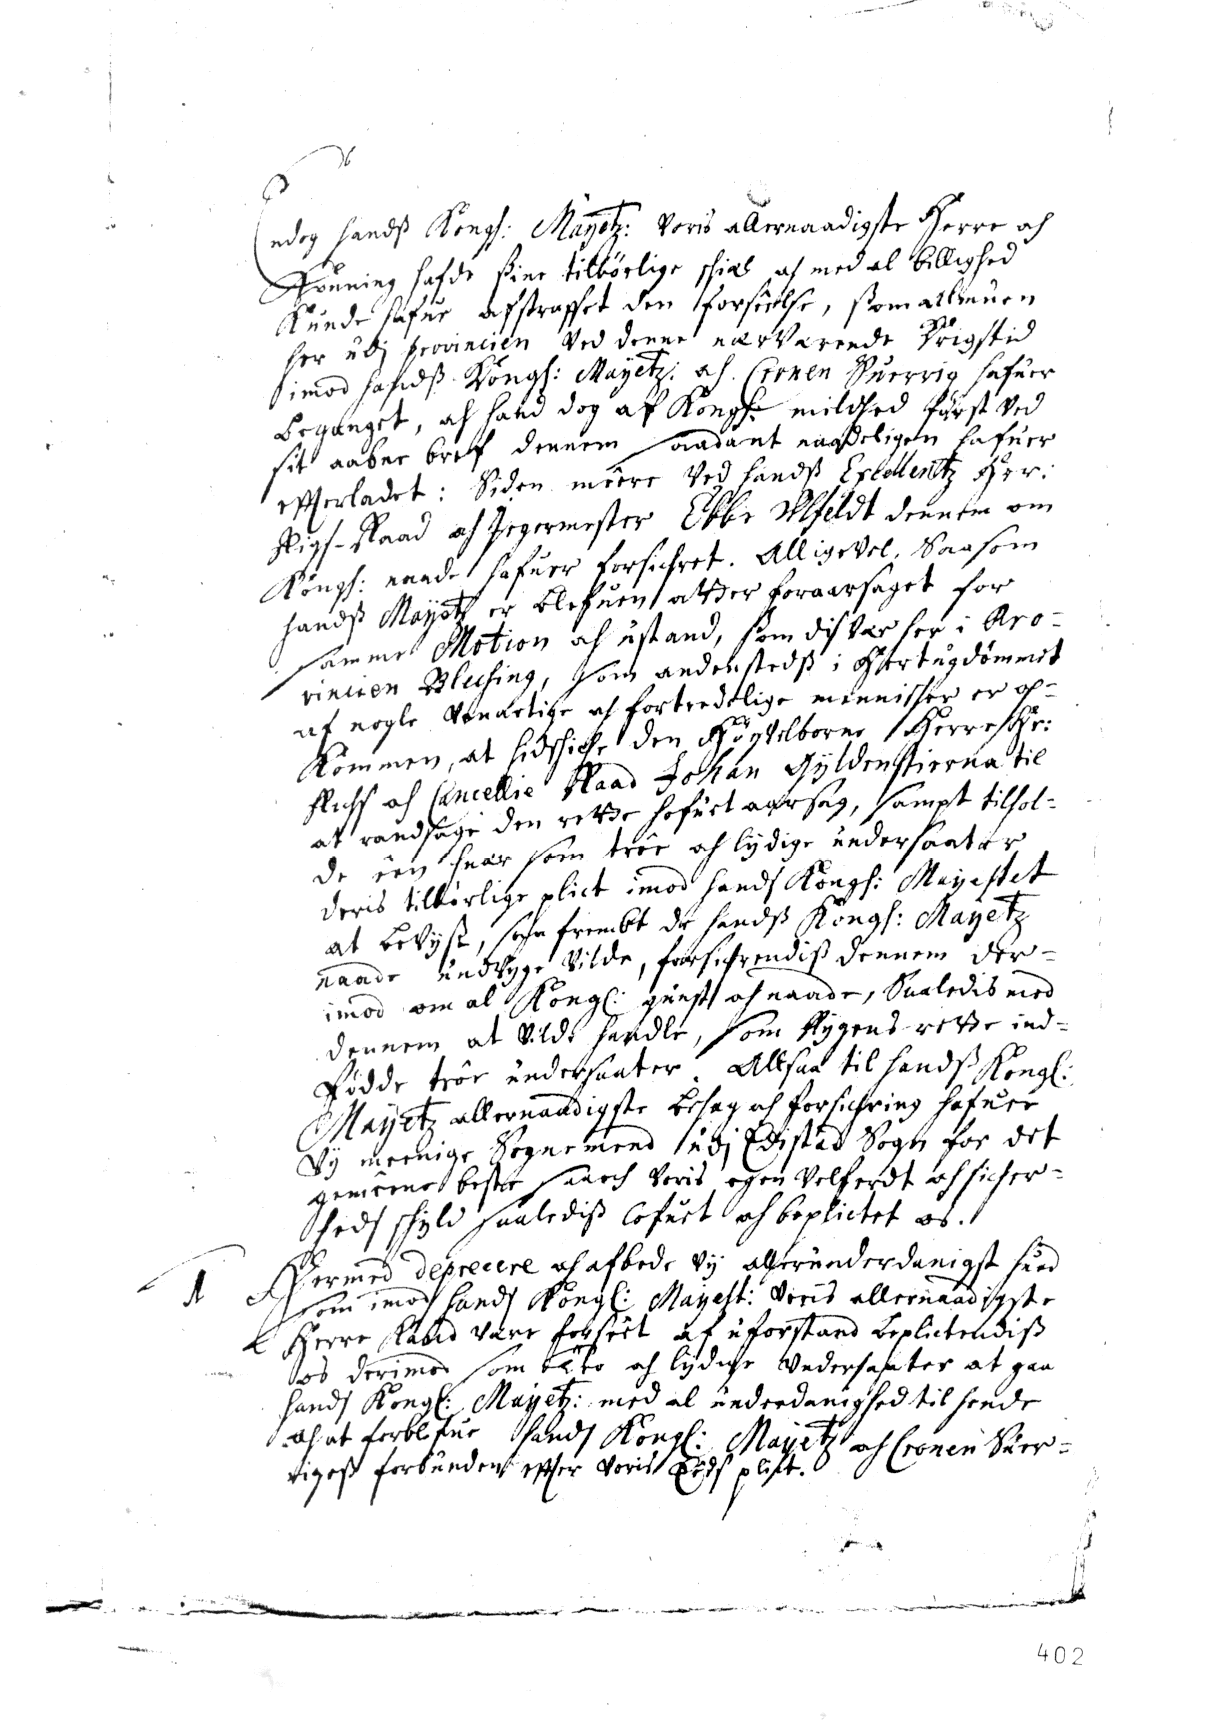 Endog hands Kongl: Mayetz: Voris allernaadigste Herre och
Konning hafde sine tilbörlige schiæl och med al billighed
Kunde hafue afstraffet den forseelse, som allmuen
her udj provincien Ved denne nærVærende Krigstid
imod handß Kongl: Mayetz: och Cronen Suerrig hafuer
beganget, och hand dog af Kongl: mildhed först Ved
sit aabne bref dennem saadant naadeligen hafuer
efterladet: Siden meere Ved handß Excellentz Her:
Rigs-Raad och Jegermester Ebbe Ulfeldt dennem om
Kongl: naade hafuer forsichret. Alligevel, Saasom
handß Mayetz er blefuen atter foraarsaget for
samme Motion och ustand, som disVær her i Pro-
vincien Bleching, som andenstedß i Hertugdömmit
af nogle Vanartige och fortredelige mennischer er op-
Kommen, at hidschiche den HöyVelborne Herre Hr:
Richs och Cancellie Raad Johan Gyldenstierna til
at randsage den rette hofuet aarsag, sampt tilhol-
de een huær som troe och lydige undersaatter
deris tilbörlige plict imod hands Kongl: Mayestet
at beVyße, saa frembt de handß Kongl: Mayetz
unaade undVyge Vilde, forsichrendiß dennem der-
imod om al Kongl: gunst och naade, Saaledis med
dennem at Vilde handle, som Rygens rette ind-
födde troe undersaater. Altsaa til handß Kongl:
Mayetz allernaadigste behag och forsichring hafuer
Vy meenige Sognemend udj Edistad Sogn for det
gemeene beste saaoch Voris egen Velferdt och sicher-
heds schyld saalediß lofuet och beplictet os.
1 Hermed deprecere och afbede Vy allerunderdanigst hued
som imod hands Kongl: Mayest: Voris allernaadigste
Herre kand Vare forseet af uforstand beplictendiß
os derimod som troo och lydige Undersaater at gaa
hands Kongl: Mayetz: med al underdanighed til hende
och at forblifue hands Kongl: Mayetz och Cronen Suer-
rigeß forbunden efter Voris Eeds plict.
402